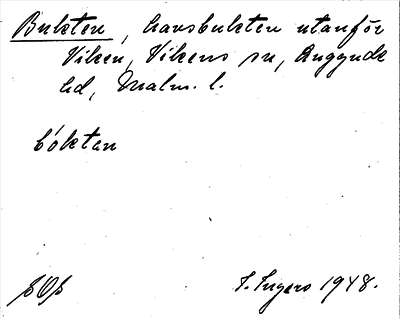 Bukten, havsbukten utanför
Viken, Vikens sn, Luggude
hd, Malm. l.
bóktan
I. Ingers 1948.